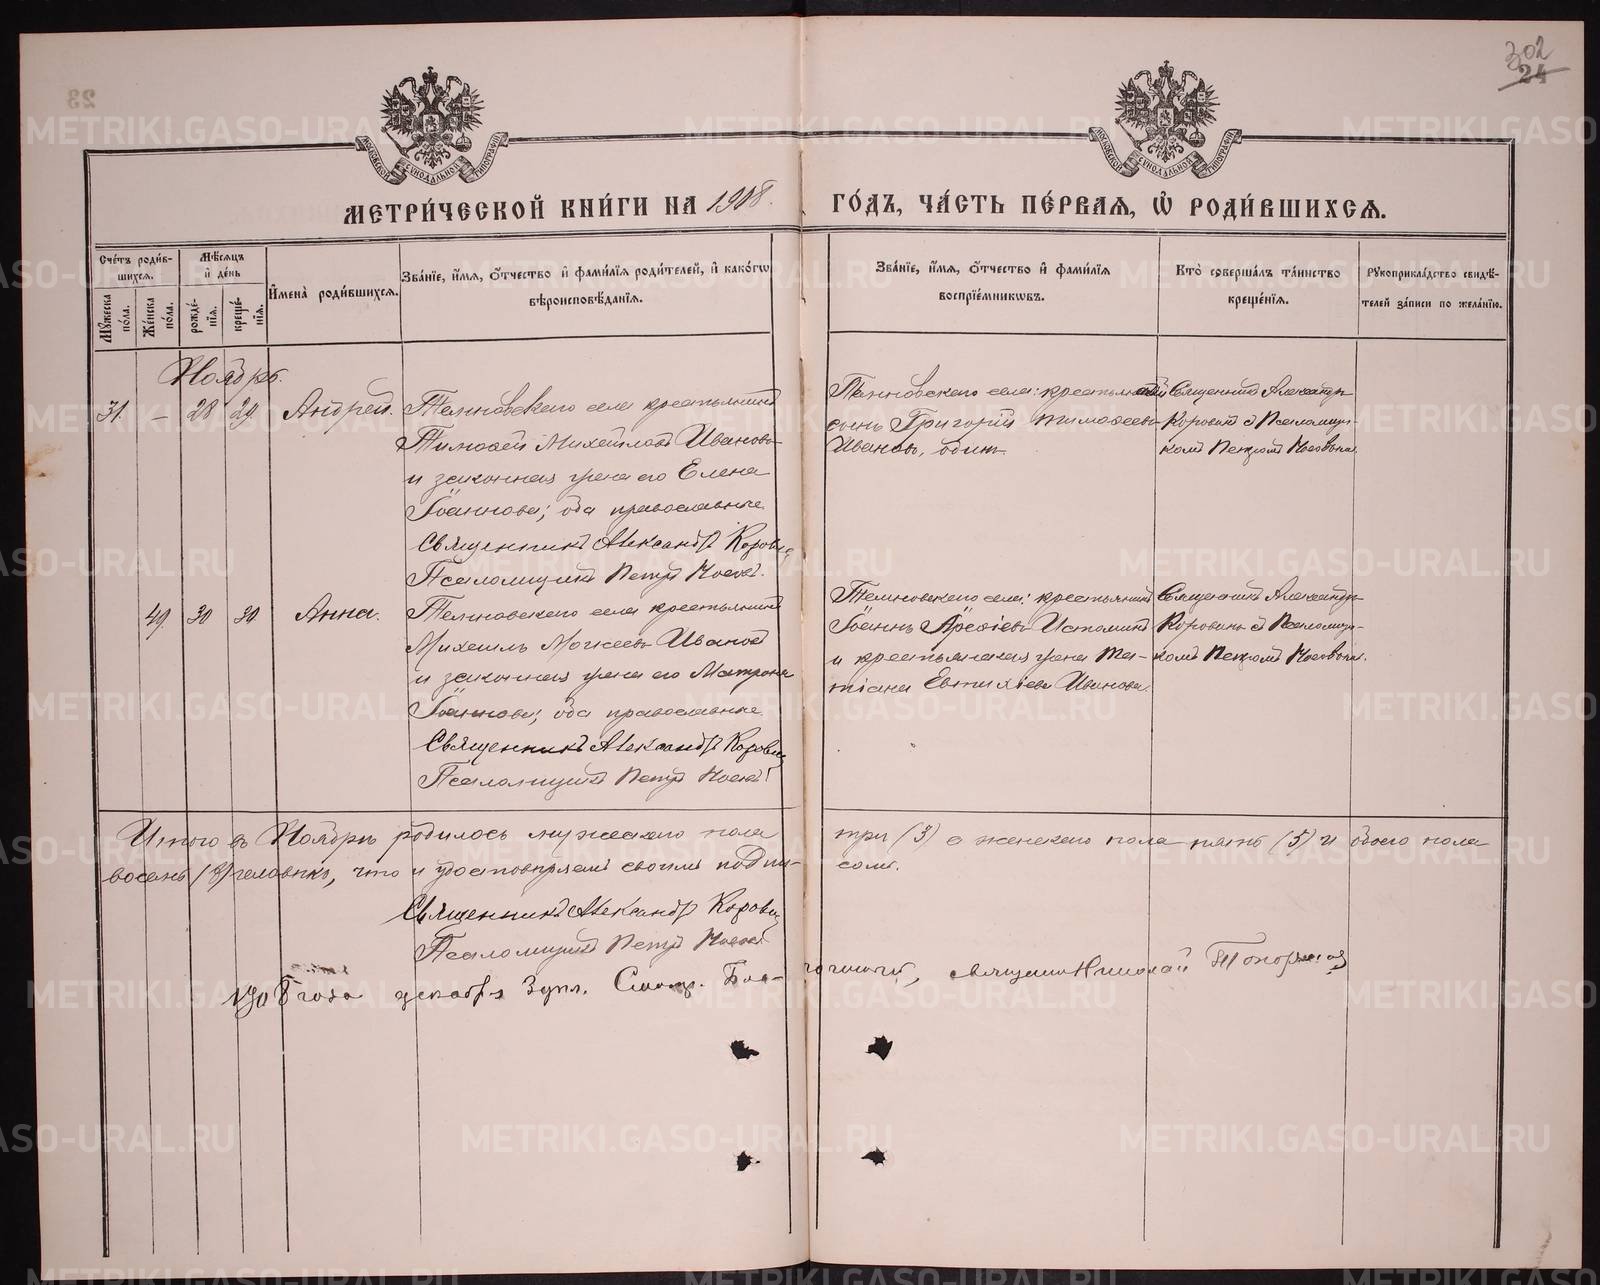 302
24
МЕТРИ́ЧЕСКОЙ КНИ́ГИ НА 1908.
ГО́ДЪ, ЧА́СТЬ ПЕ́РВАЯ, Ѡ РОДИ́ВШИХСЯ.
Сче́тъ роди́в-
шихся.
Му́жеска по́ла.
Же́нска по́ла.
Мѣ́сяцъ
и҆ де́нь
рожде́-
нїя.
креще́-
нїя.
И҆мена̀ роди́вшихся.
Зва́нїе, и҆́мя, о҆́тчество и҆ фами́лїя роди́телей, и҆ како́гѡ
вѣроисповѣ́данїя.
Зва́нїе, и҆́мя, о҆́тчество и҆ фами́лїя
воспрїе́мникѡвъ.
Кто̀ соверша́лъ та́инство
креще́нїя.
Рꙋкоприкла́дство свидѣ́-
телей за́писи по жела́нїю.
Ноябрь.
31. – 28 29 Андрей.
села крестьянинъ
Тимофей Михайловъ Ивановъ
и законная жена его Елена
Іоаннова; оба православные.
Священникъ Александръ Коровинъ
Псаломщикъ Петръ
села: крестьянскій
сынъ Григорій Тимофеевъ
Ивановъ,
Священникъ Александръ
Коровинъ с Псаломщи-
комъ Петромъ
49. 30 30 Анна.
села крестьянинъ
Михаилъ Моисеевъ Ивановъ
и законная жена его Матрона
Іоаннова; оба православные.
Священникъ Александръ Коровинъ
Псаломщикъ Петръ
села: крестьянинъ
Іоаннъ Истоминъ
и крестьянская жена Та-
тіана Евтихіева Иванова.
Священникъ Александръ
Коровинъ с Псаломщи-
комъ Петромъ
Итого въ Ноябрѣ родилось мужескаго пола
три (3) а женскаго пола пять (5) и обоего пола
восемь (8) человѣкъ, что и удостовѣряемъ своимъ подпи-
сомъ.
Священникъ Александръ Коровинъ
Псаломщикъ Петръ
1908 года декабря 3
священникъ Николай Топорковъ
METRIKI.GASO-URAL.RU